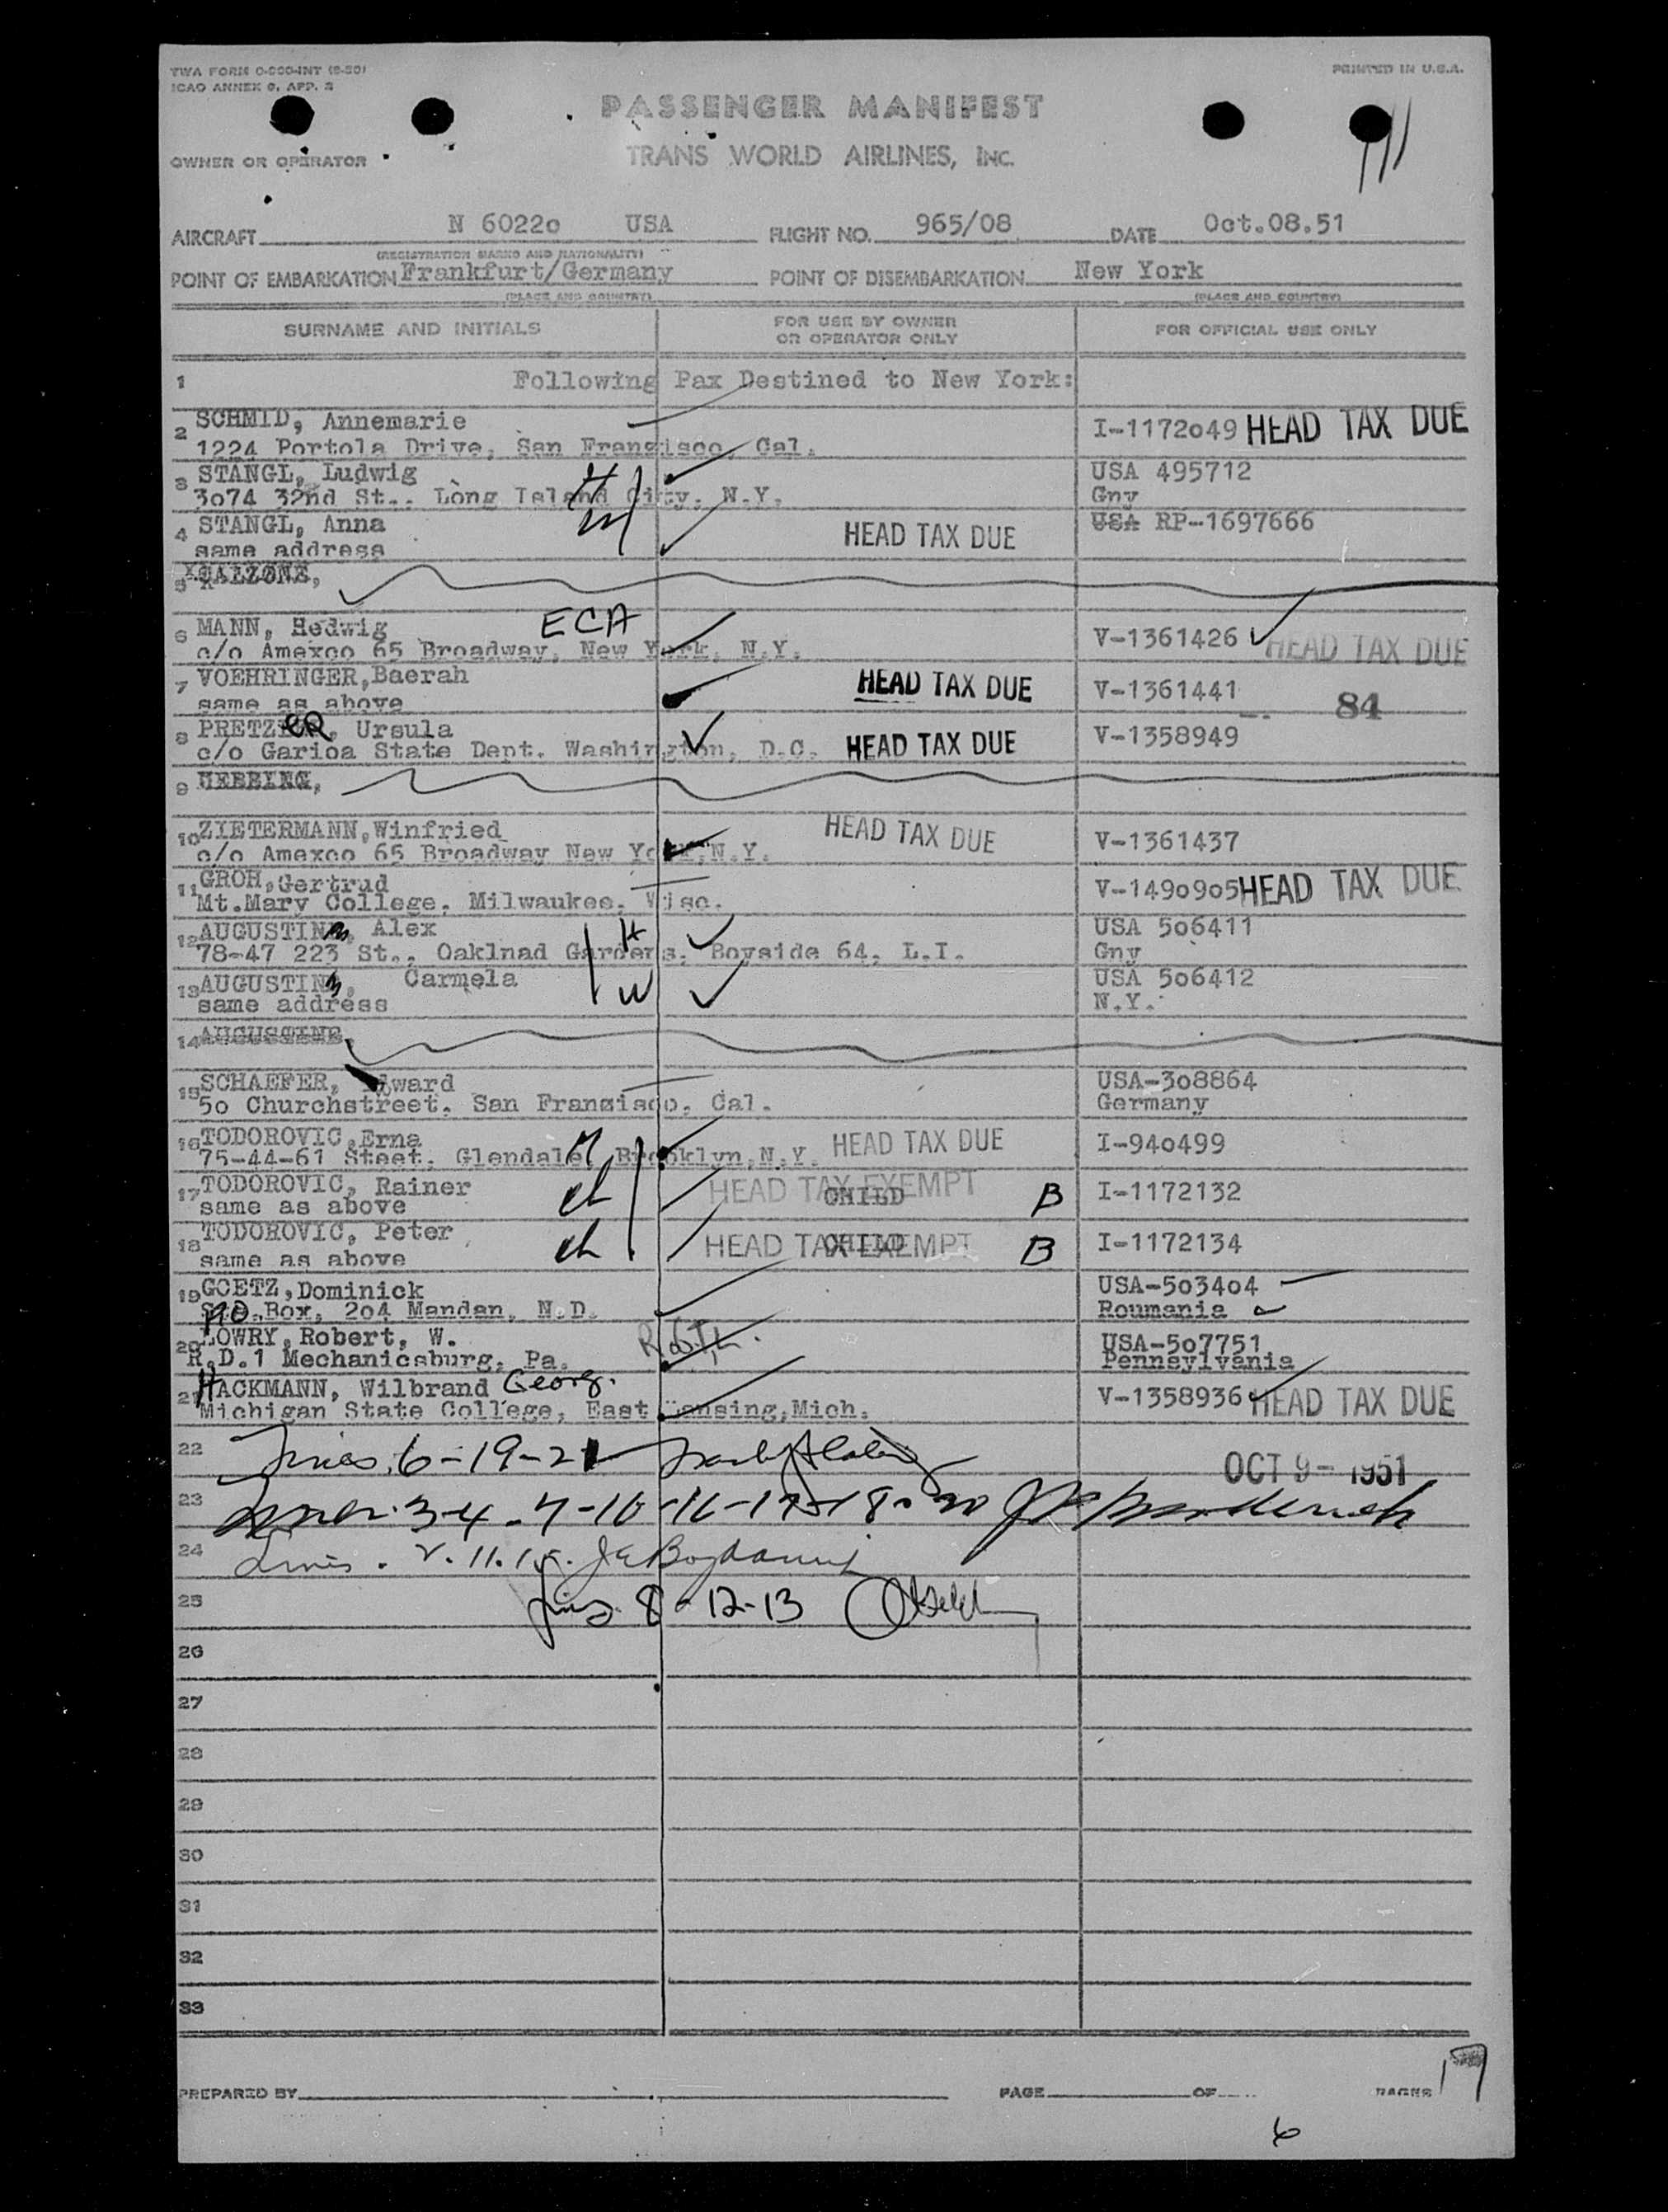 TWA FORM O-200-INT (8-50)
ICAO ANNEX 9, APP. 2
PRINTED IN U.S.A.
PASSENGER MANIFEST
OWNER OR OPERATOR
TRANS WORLD AIRLINES, INC.
AIRCRAFT N 6022o USA FLIGHT NO. 965/08 DATE Oct.08.51
(REGISTRATION MARKS AND NATIONALITY)
POINT OF EMBARKATION Frankfurt/Germany POINT OF DISEMBARKATION New York
(PLACE AND COUNTRY) (PLACE AND COUNTRY)
SURNAME AND INITIALS FOR USE BY OWNER OR OPERATOR ONLY FOR OFFICIAL USE ONLY
1 Following Pax Destined to New York:
2 SCHMID, Annemarie I-1172o49 HEAD TAX DUE
1224 Portola Drive, San Franzisco, Cal.
3 STANGL, Ludwig H USA 495712
3o74 32nd St., Long Island City, N.Y. Gny
4 STANGL, Anna HEAD TAX DUE USA RP-1697666
same address
5 CALZONE,
6 MANN, Hedwig ECA V-1361426 HEAD TAX DUE
c/o Amexco 65 Broadway, New York, N.Y.
7 VOEHRINGER, Baerah HEAD TAX DUE V-1361441 84
same as above
8 PRETZER, Ursula V-1358949
c/o Garioa State Dept. Washington, D.C. HEAD TAX DUE
9 UEBBING,
10 ZIETERMANN, Winfried HEAD TAX DUE V-1361437
c/o Amexco 65 Broadway New York, N.Y.
11 GROH, Gertrud V-149o9o5 HEAD TAX DUE
Mt.Mary College, Milwaukee, Wisc.
12 AUGUSTIN, Alex H USA 5o6411
78-47 223 St., Oaklnad Gardens, Bayside 64, L.I. Gny
13 AUGUSTIN, Carmela W USA 5o6412
same address N.Y.
14 AUGUSTINE,
15 SCHAEFER, Edward USA-3o8864
5o Churchstreet, San Franzisco, Cal. Germany
16 TODOROVIC, Erna M HEAD TAX DUE I-940499
75-44-61 Steet, Glendale, Brooklyn, N.Y.
17 TODOROVIC, Rainer ch HEAD TAX EXEMPT CHILD B I-1172132
same as above
18 TODOROVIC, Peter ch HEAD TAX EXEMPT CHILD B I-1172134
same as above
19 GOETZ, Dominick USA-5o34o4
P.O.Box, 2o4 Mandan, N.D. Roumania
20 LOWRY, Robert, W. USA-5o7751
R.D.1 Mechanicsburg, Pa. Pennsylvania
21 HACKMANN, Wilbrand Georg. V-1358936 HEAD TAX DUE
Michigan State College, East Lansing, Mich.
22 Lines 6-19-21 OCT 9 - 1951
23 Lines 3-4-7-10-16-17-18-20
24 Lines . 2. 11. 15.
25 Lines 8-12-13
26
27
28
29
30
31
32
33
PREPARED BY PAGE OF PAGES 17
6